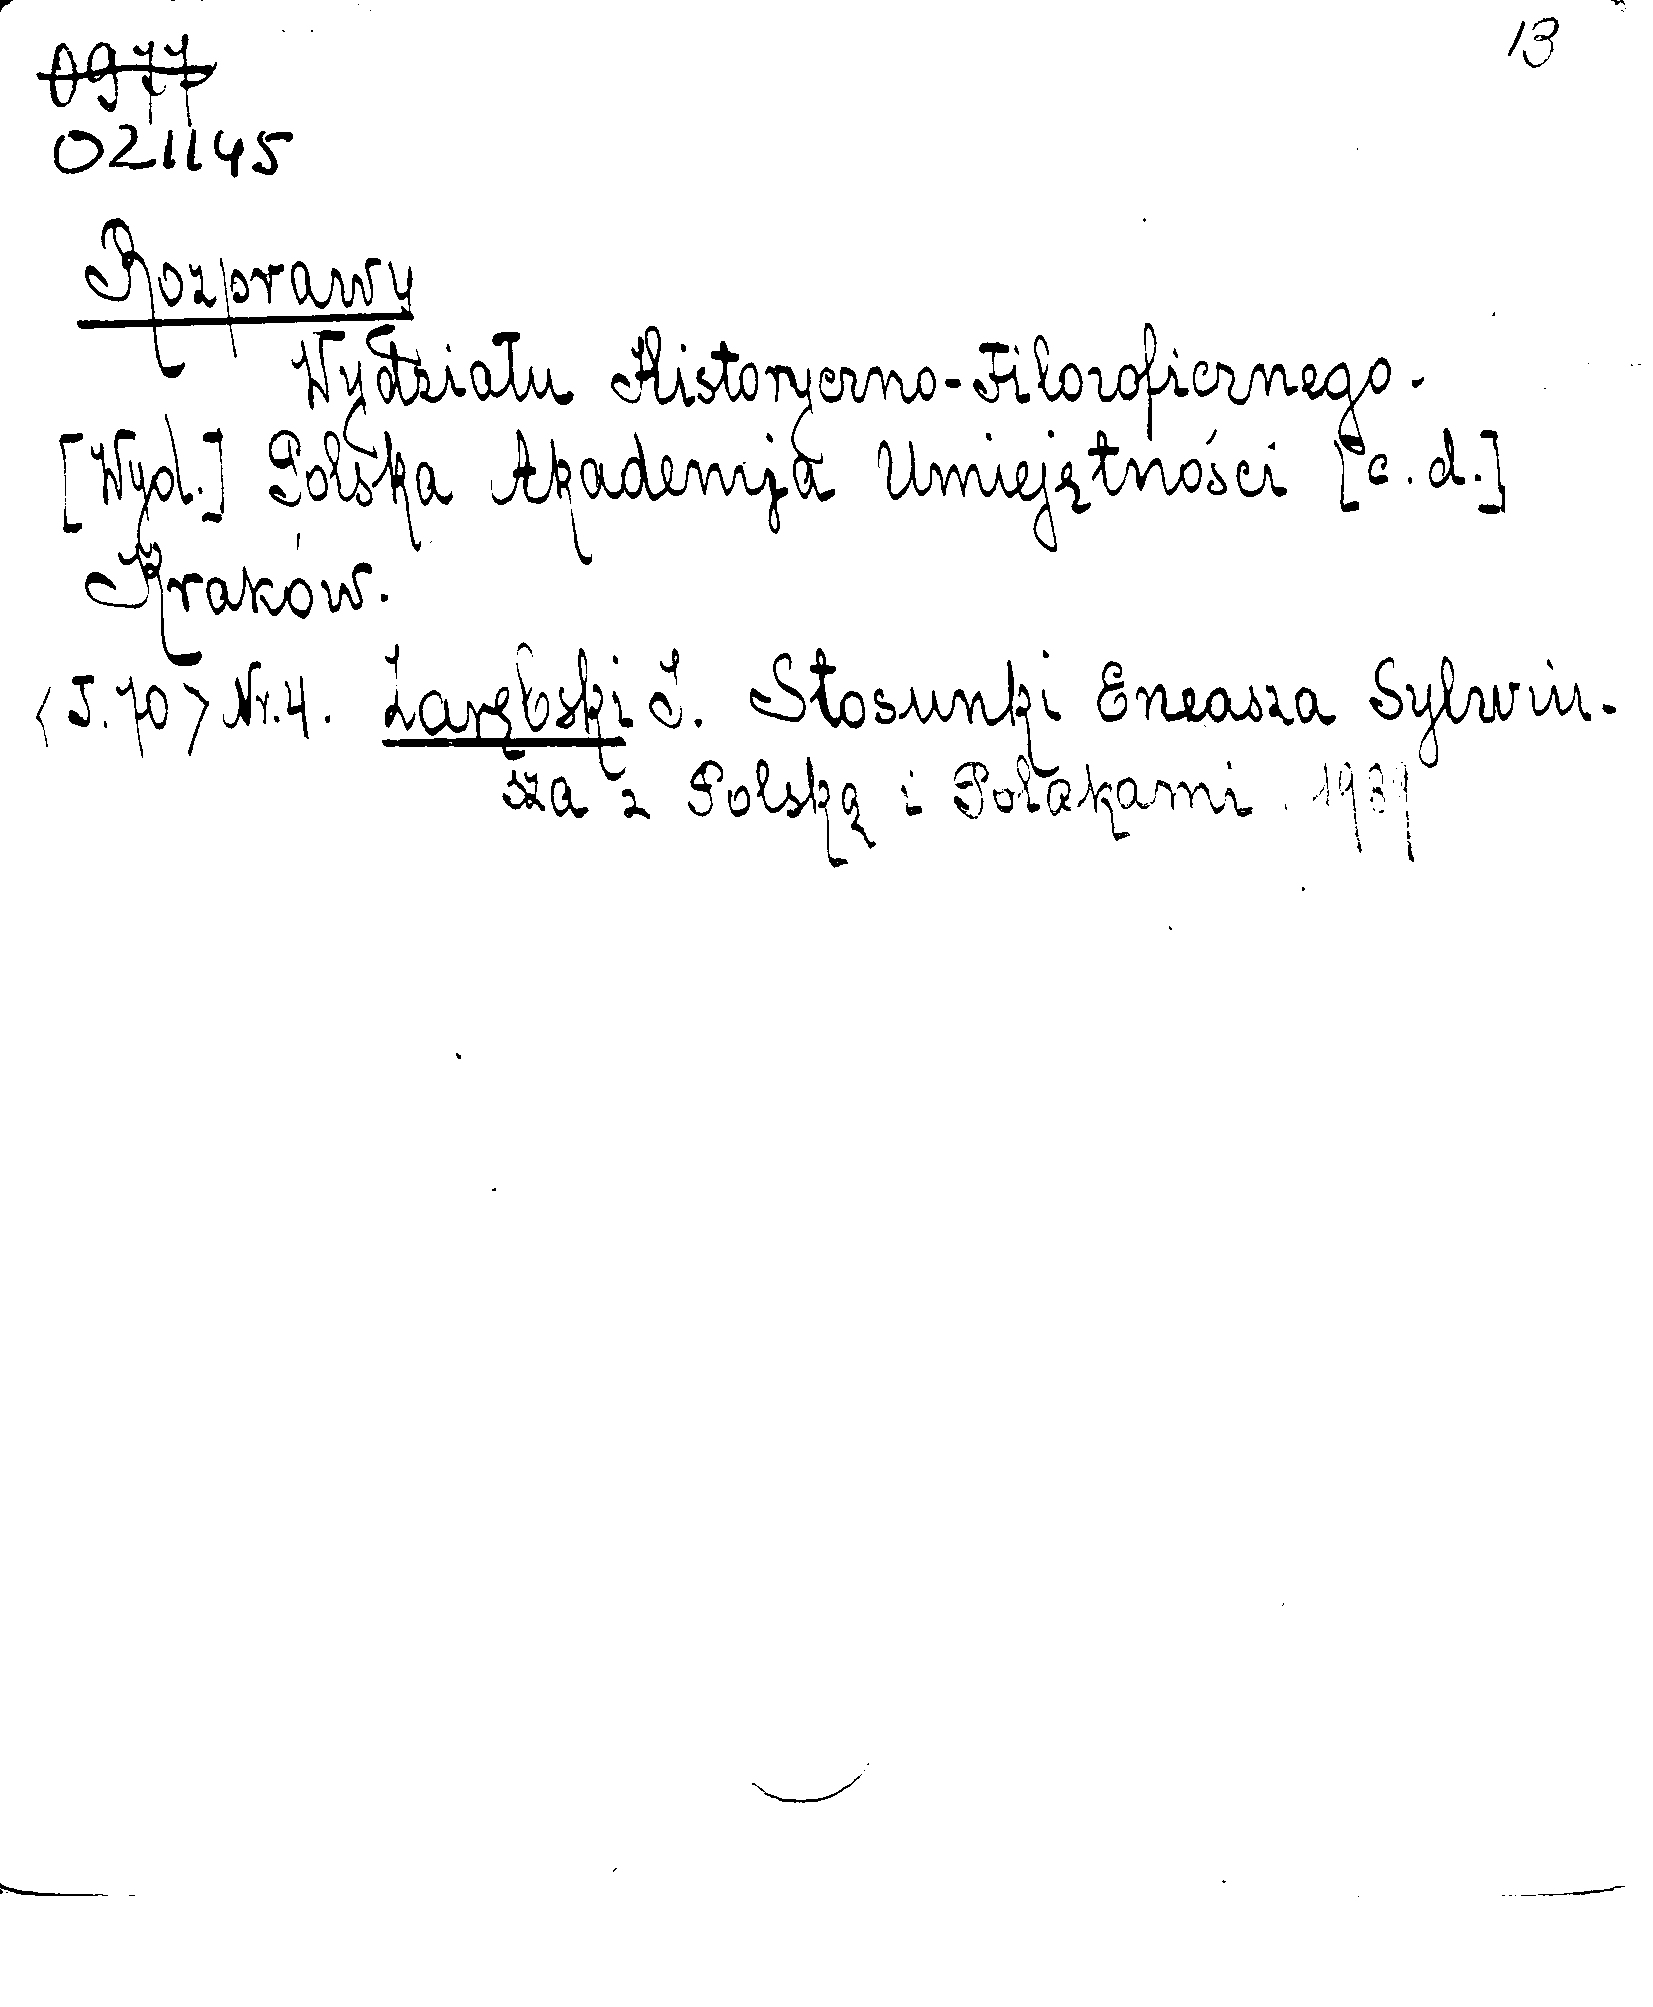 13
0977
021145
Rozprawy
Wydziału Historyczno-Filozoficznego.
[Wyd.] Polska Akademja Umiejętności [c.d.]
Kraków.
<T.70> Nr.4. Zarębski I. Stosunki Eneasza Sylwiu-
sza z Polską i Polakami. 1939